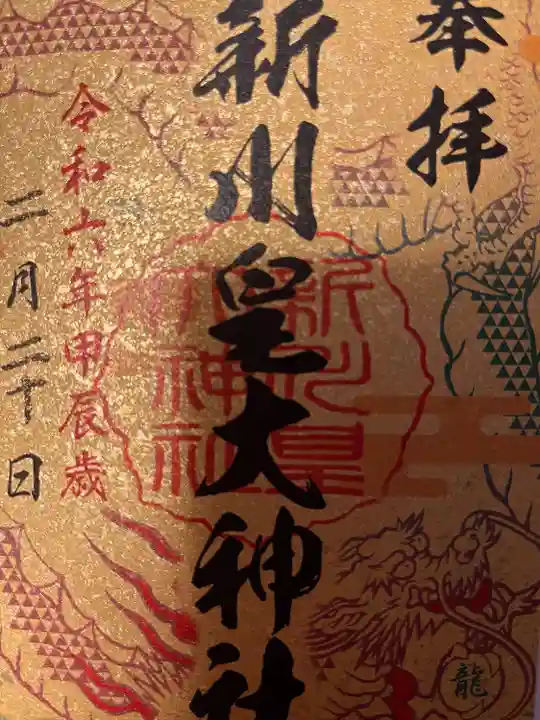 奉拝
新川皇大神社
令和六年甲辰歳
二月二十日
新川皇
大神社
龍